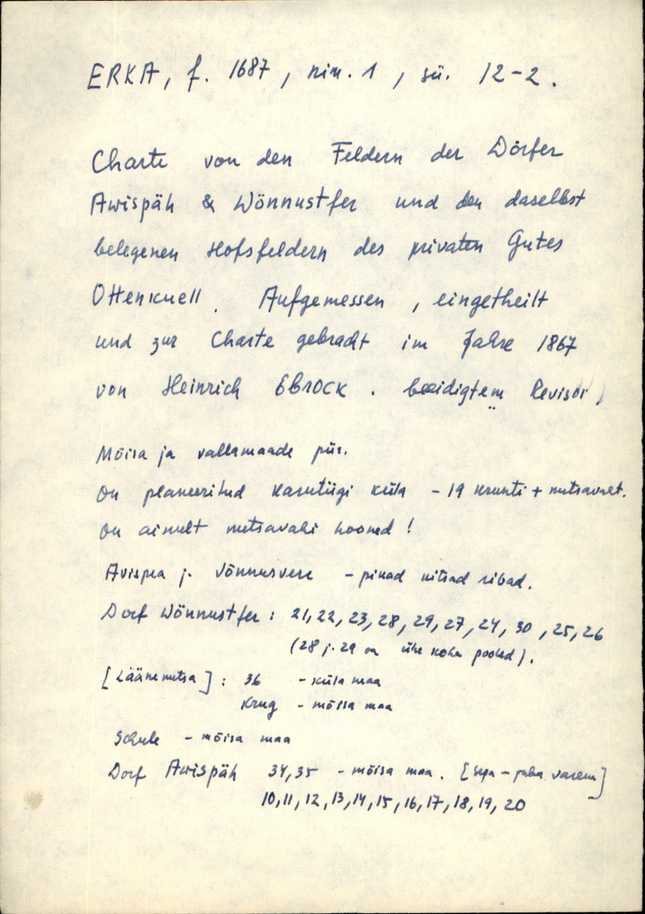 ERKA, f. 1687, nim. 1, sü. 12-2.
Charte von den Feldern der Dörfer
Awispäh & Wönnustfer und den daselbst
belegenen Hofsfeldern des privaten Gutes
Ottenkuell. Aufgemessen, eingetheilt
und zur Charte gebracht im Jahre 1867
von Heinrich EBROCK. beeidigtem Revisor,
Mõisa ja vallamaade piir.
On planeeritud Karutiigi küla - 19 krunti + metsavaht.
On ainult metsavahi hooned!
Avispea j. Võnnusvere - pikad kitsad ribad.
Dorf Wönnustfer: 21, 22, 23, 28, 29, 27, 24, 30, 25, 26
(28 j. 29 on ühe koha pooled).
[Läänemetsa]: 36 - küla maa
Krug - mõisa maa
Schule - mõisa maa
Dorf Awispäh 34, 35 - mõisa maa. [Sepa - juba varem]
10, 11, 12, 13, 14, 15, 16, 17, 18, 19, 20